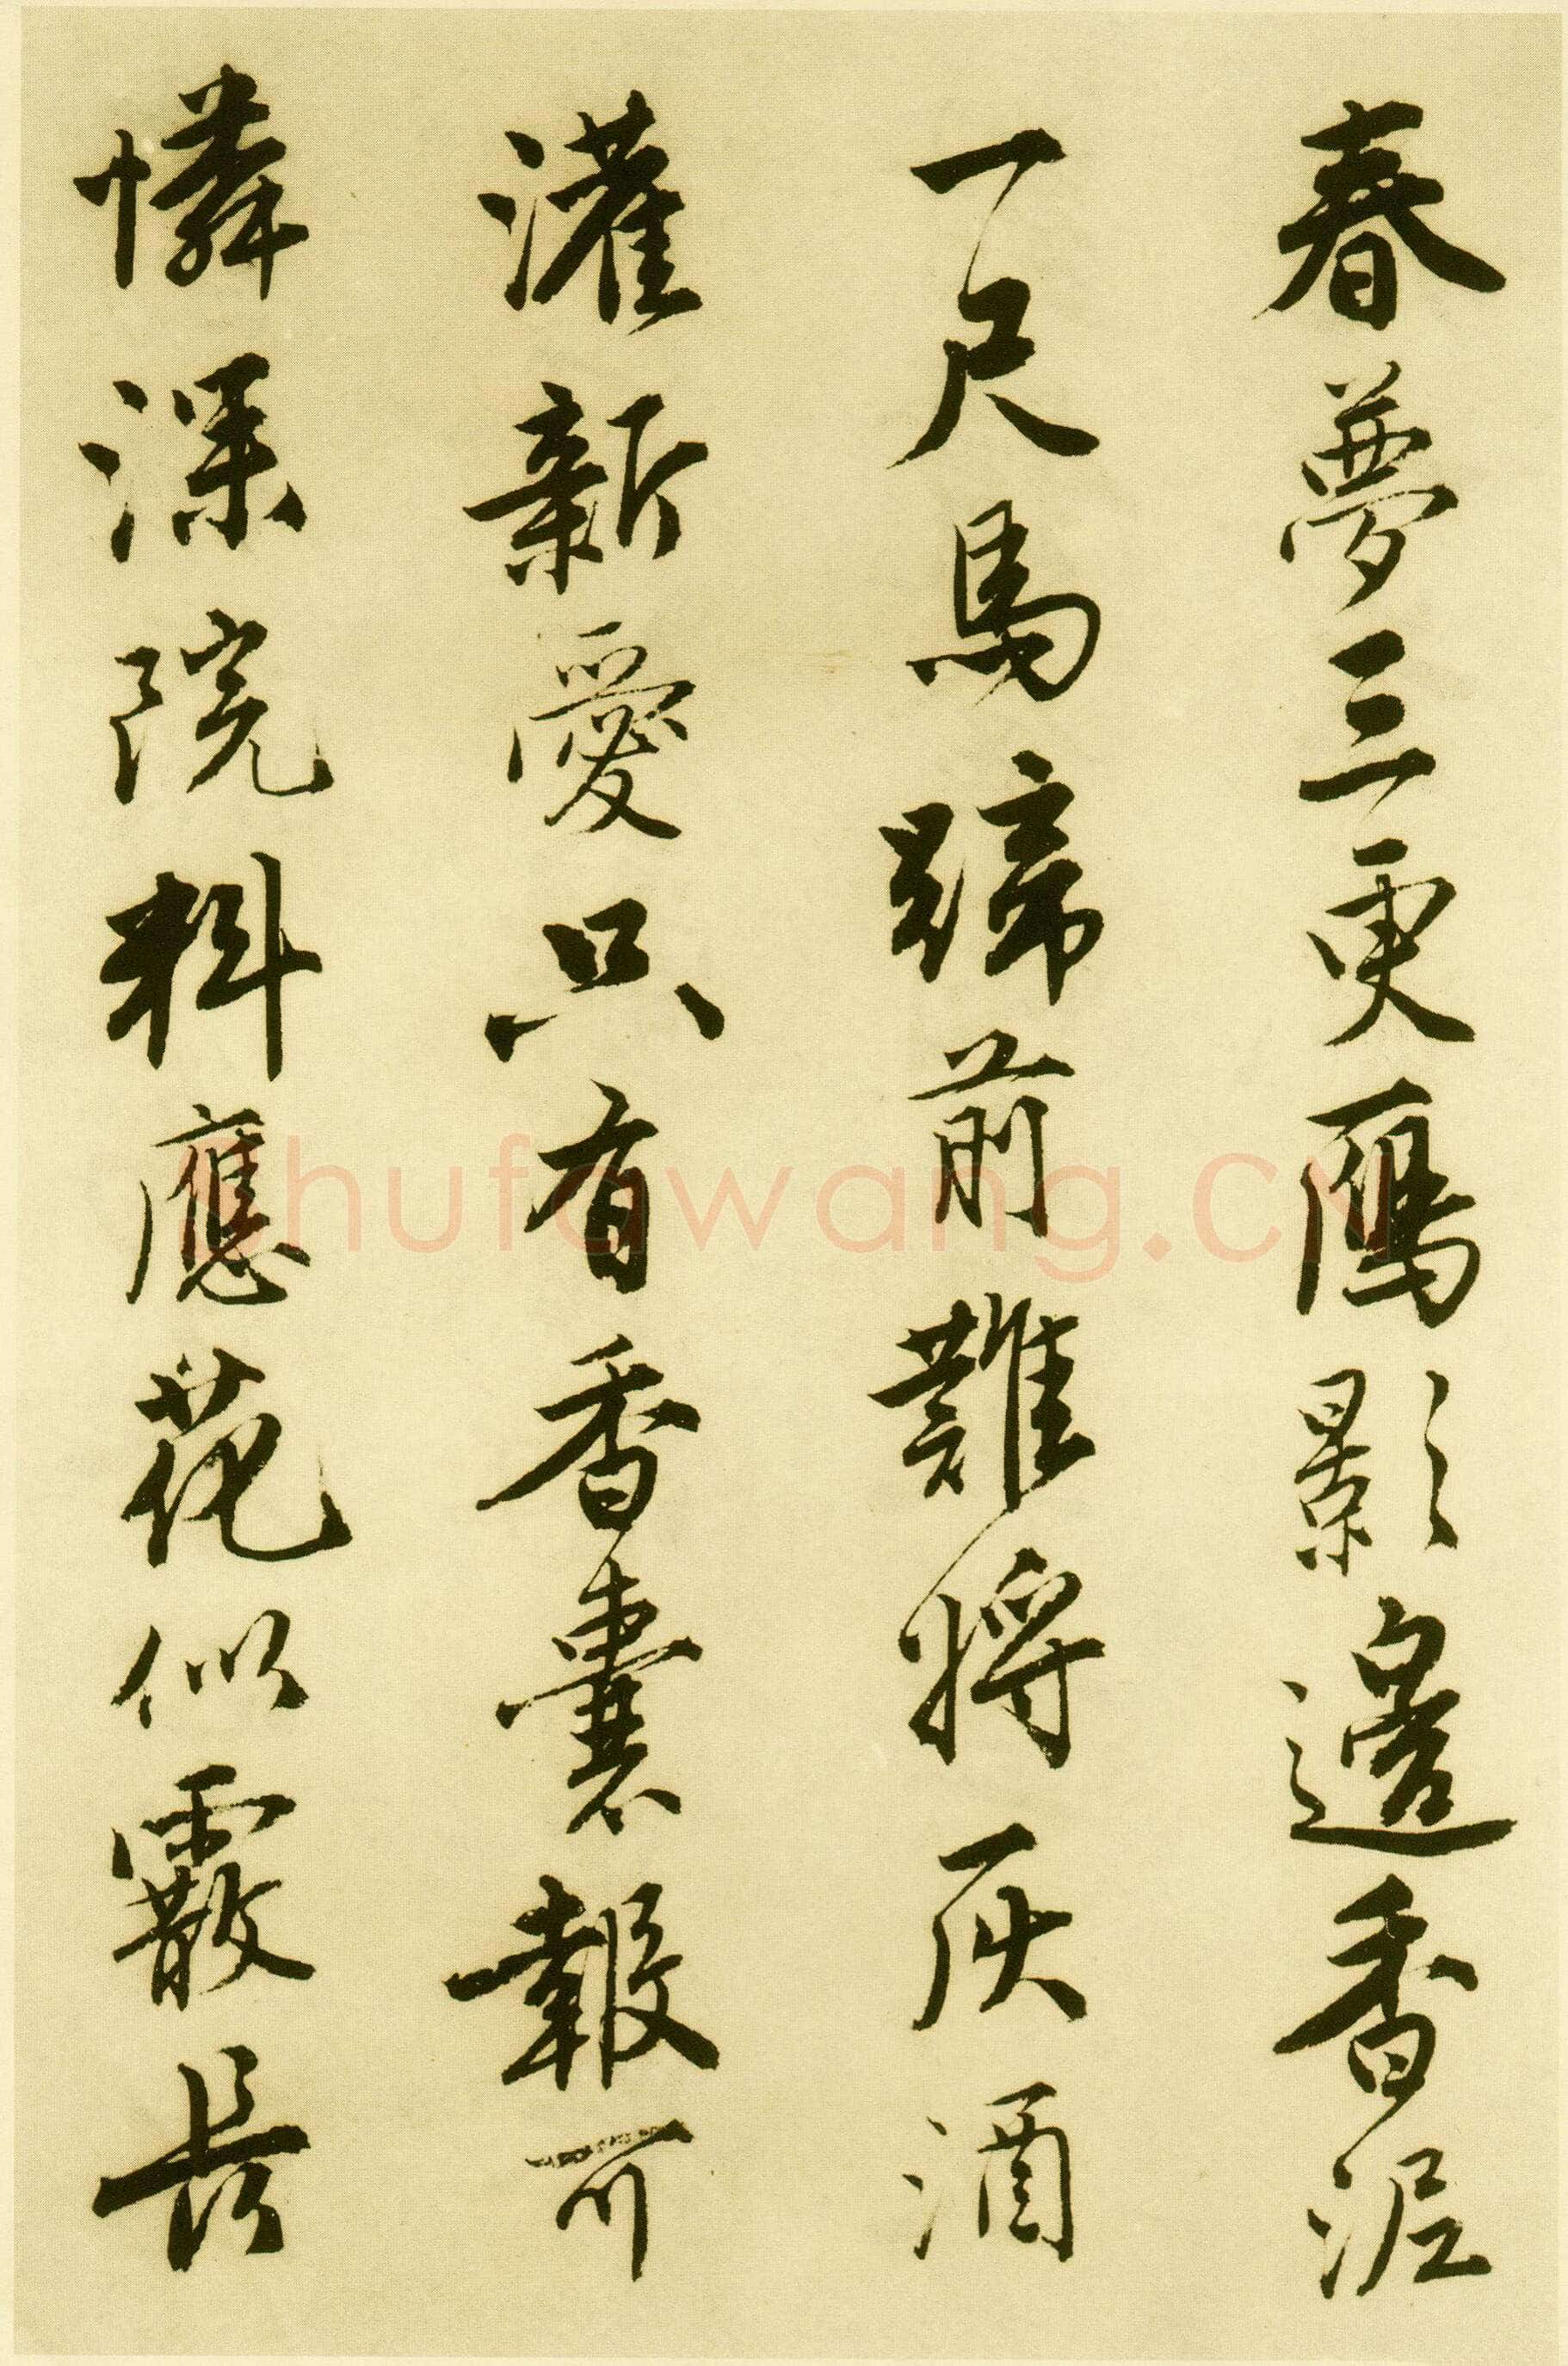 春夢三更鴈影邊香泥
一尺馬蹄前難將灰酒
灌新愛只有香囊報可
憐深院料應花似霰長
Shufawang.CN